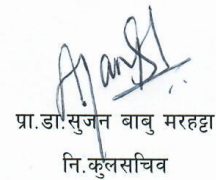 प्रा.डा.सुजन बाबु मरहट्टा
नि.कुलसचिव